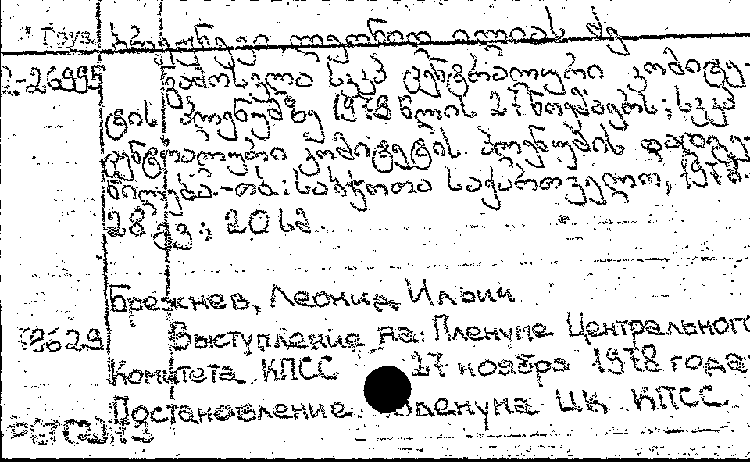 Груз. ბრეჟნევი, ლეონიდ ილიას ძე
2-26995 გამოსვლა სკკპ ცენტრალური კომიტე-
ტის პლენუმზე 1978 წლის 27 ნოემბერს; სკკპ
ცენტრალური კომიტეტის პლენუმის დადგე-
ნილება.-თბ.: საბჭოთა საქართველო, 1978.
28 გვ.; 20 სმ
Брежнев, Леонид Ильич
Выступление на Пленуме Центрального
Комитета КПСС 27 ноября 1978 года
Постановление Пленума ЦК КПСС